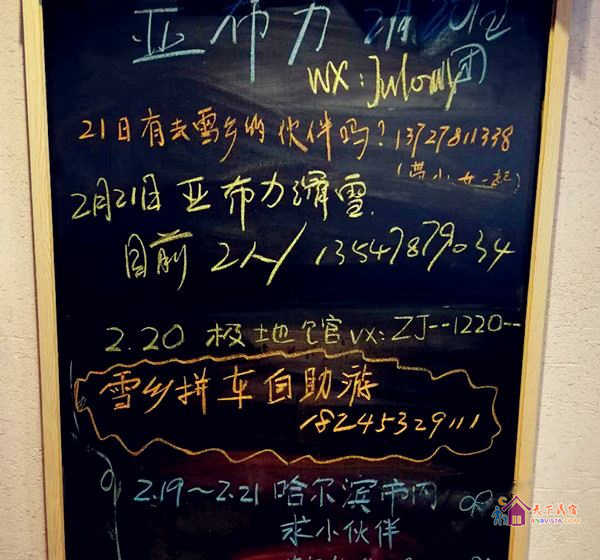 亚布力 2月20
WX: 团
21日有去雪乡的伙伴吗? 13727811338
2月21日 亚布力滑雪
目前 2人/ 13547879034
2.20 极地馆 VX: ZJ--1220--
雪乡拼车自助游
18245329111
2.19~2.21 哈尔滨市内
求小伙伴
天下民宿